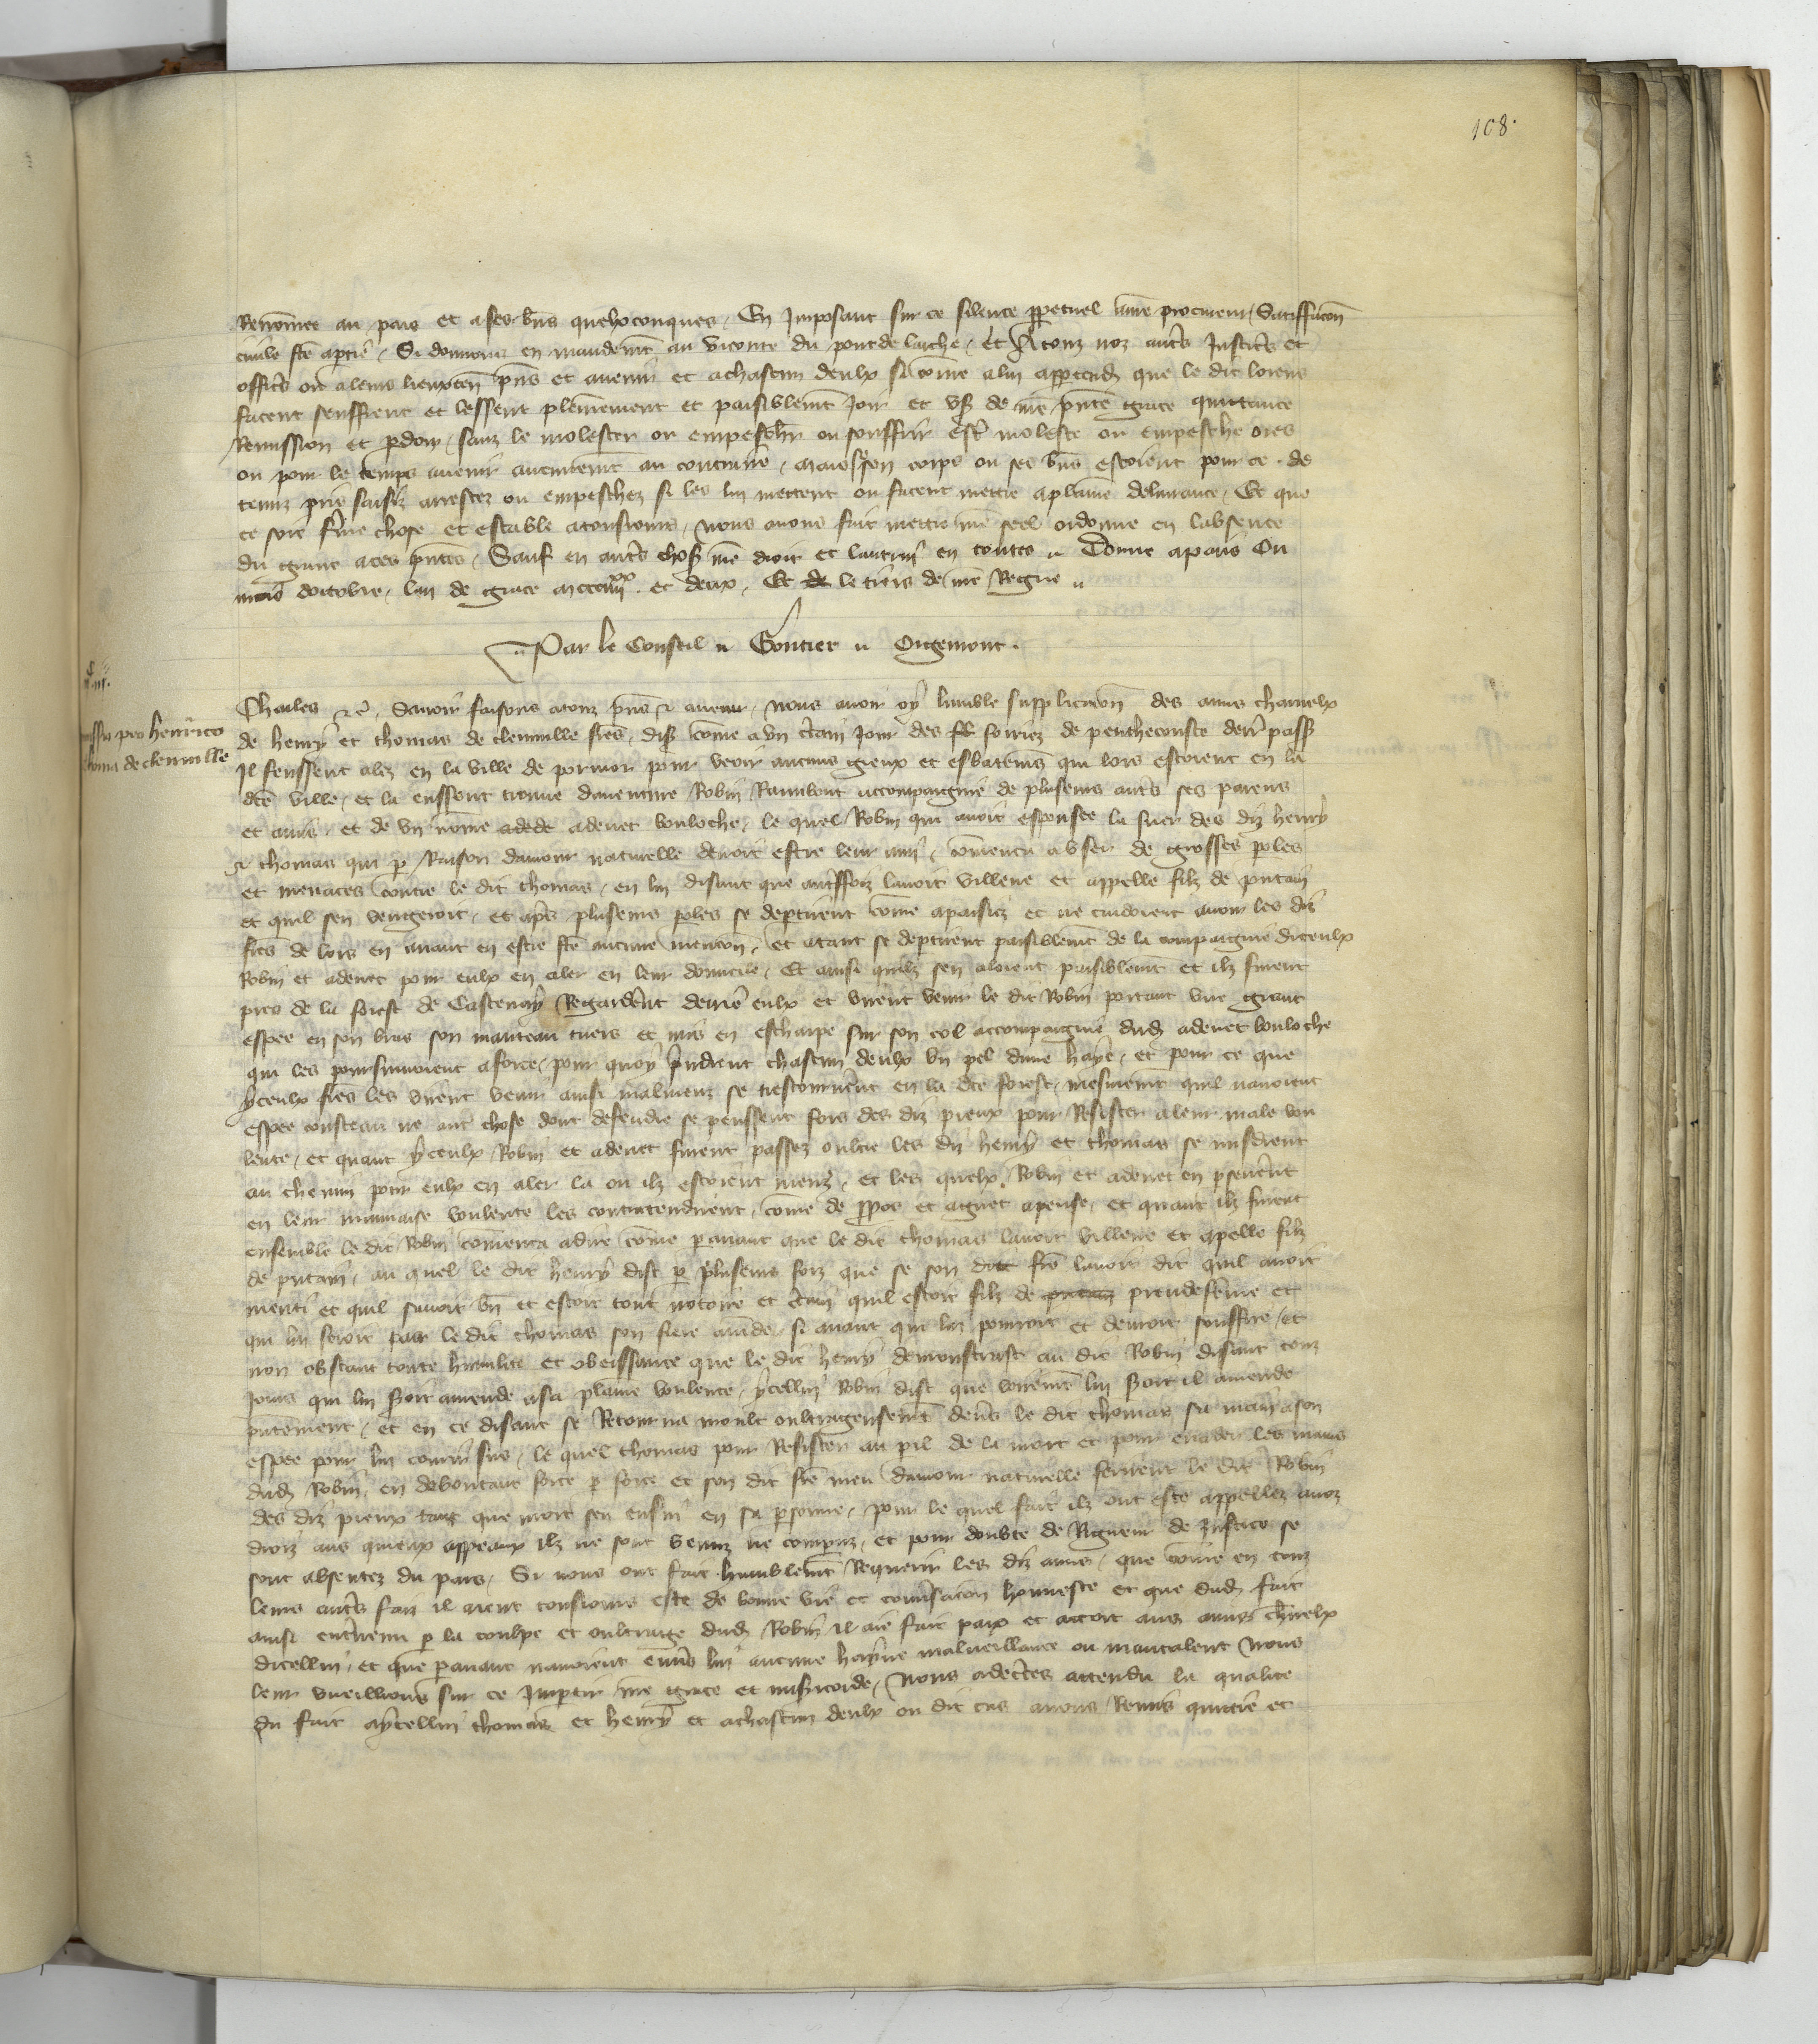 108.
Renommee au pais et a ses bns quelxconques. En Imposant sur ce silence ppetuel a nre procureur / Satisffacon
civile fte aptie. Si donnons en mandemt au viconte du pont de larche. Et A touz noz autrs Justicrs et
officrs ou a leurs lieuxten pns et avenir et a chascun deulx si come a lui appartendra que le dit lorens
facent seuffrent et lessent plenierement et paisiblemt Joir et user de nre pnte grace quictance
Remission et pdon, sanz le molester ou empeschr ou souffrir estr moleste ou empesche ores
ou pour le temps avenir aucunemt au contraire, mais son corps ou ses bns estoient pour ce de
tenuz pris saisiz arrestez ou empeschez si les lui mettent ou facent mettre a plaine delivrance. Et que
ce soit ferme chose et estable a tousiours, nous avons fait mettre nre seel ordonne en labsence
du grant a ces pntes. Sauf en autrs choses nre droit et lautruy en toutes. Donne a paris Ou
mois doctobre. lan de grace mccciiiixx et deux. Et de le tiers de nre Regne
Par le Conseil Gontier Orgemont.
Remissio pro henrico
et thoma de clerville
Charles etc. Savoir faisons a touz pns et avenir. nous avoir oy lumble supplicacion des amis charnelx
de henry et thomas de clerville freres, disans come a un certain Jour des ff foiriez de penthecouste derr passe
Il feussent alez en la ville de pormor pour veoir aucuns gieux et esbatemens qui lors estoient en la
dte ville, et la eussent trouve daventure Robin Raimbout accompaignie de pluseurs autrs ses parens
et amis, et de un nome adede adenet bouloche, le quel Robin qui avoit espousee la suer des diz henry
et thomas qui p Raison damour naturelle devoit estre leur ami, comenca a user de grosses poles
et menaces contre le dit thomas, en lui disant que autrffoiz lavoit villene et appelle filz de putain
et quil sen vengeroit, et aprs plusieurs poles se deptirent come apaisiez et ne cuidoient avoir les diz
freres de lors en avant en estre fte aucune mencion, et atant se deptirent paisiblemt de la compaignie diceulx
Robin et adenet pour eulx en aler en leur domicile. Et ainsi quilz sen aloient paisiblemt et ilz furent
pres de la forest de Castenay Regarderent derrie eulx et virent venir le dit Robin portant une grant
espee en son bras son manteau tuers et mis en escharpe sur son col accompaignie dud adenet bouloche
qui les poursuivoient a force, pour quoy prindrent chascun deulx un pel dune haye, et pour ce que
yceulx freres les virent venir ainsi malmenz se trestournerent en la dte forest, mesmement quil navoient
espee cousteau ne autre chose dont defendre se peussent fors des diz pieux pour Resister a leur male vou
lente, et quant yceulx Robin et adenet furent passez oultre les diz henry et thomas se misdrent
au chemin pour eulx en aler la ou ilz estoient menz, et les quelx Robin et adenet en psevert
en leur mauvaise voulente les contratendirent, come de ppos et aguet apense, et quant ilz furent
ensemble le dit Robin comenca a dire come pavant que le dit thomas lavoit villene et apelle filz
de putain, au quel le dit henry dist p plusieurs foiz que se son dit frere lavoit dit quil avoit
menti et quil savoit bn et estoit tout notoire et certain quil estoit filz de putain preudefeme et
qui lui seroit par le dit thomas son frere amende, si avant que lui pourroit et devroit souffire, et
non obstant toute humilite et obeissance que le dit henry demonstrast au dit Robin disant touz
Jours qui lui seroit amende a sa plaine voulente, ycellui Robin dist que voirement lui seroit il amende
putement, et en ce disant se Retourna moult oultrageusement devers le dit thomas sa main a son
espee pour lui courir sus, le quel thomas pour Resister au pil de la mort et pour evader les mains
dud Robin, en deboutant force p force et son dit frere meu damour naturelle ferirent le dit Robin
des diz pieux tant que mort sen ensui en sa psonne, pour le quel fait ilz ont este appellez a noz
droiz aus quieulx appeaux ilz ne sont venuz ne comparuz, et pour doubte de Rigueur de Justice se
sont absentez du pais. Si nous ont fait humblement Requerir les diz amis, que come en touz
leurs autrs faiz il aient tousiours este de bonne vie et conversacion honneste et que dud fait
ainsi entrvenu p la coulpe et oultrage dud Robin il aie fait paix et acort aus amis charnelx
dicellui, et que pavant navoient envrs lui aucune hayne malveillance ou mautalent Nous
leur vueillions sur ce Impartir nre grace et misericorde, Nous adecertes attendu la qualite
du fait a ycellui thomas et henry et a chascun deulx ou dit cas avons Remis quictie et